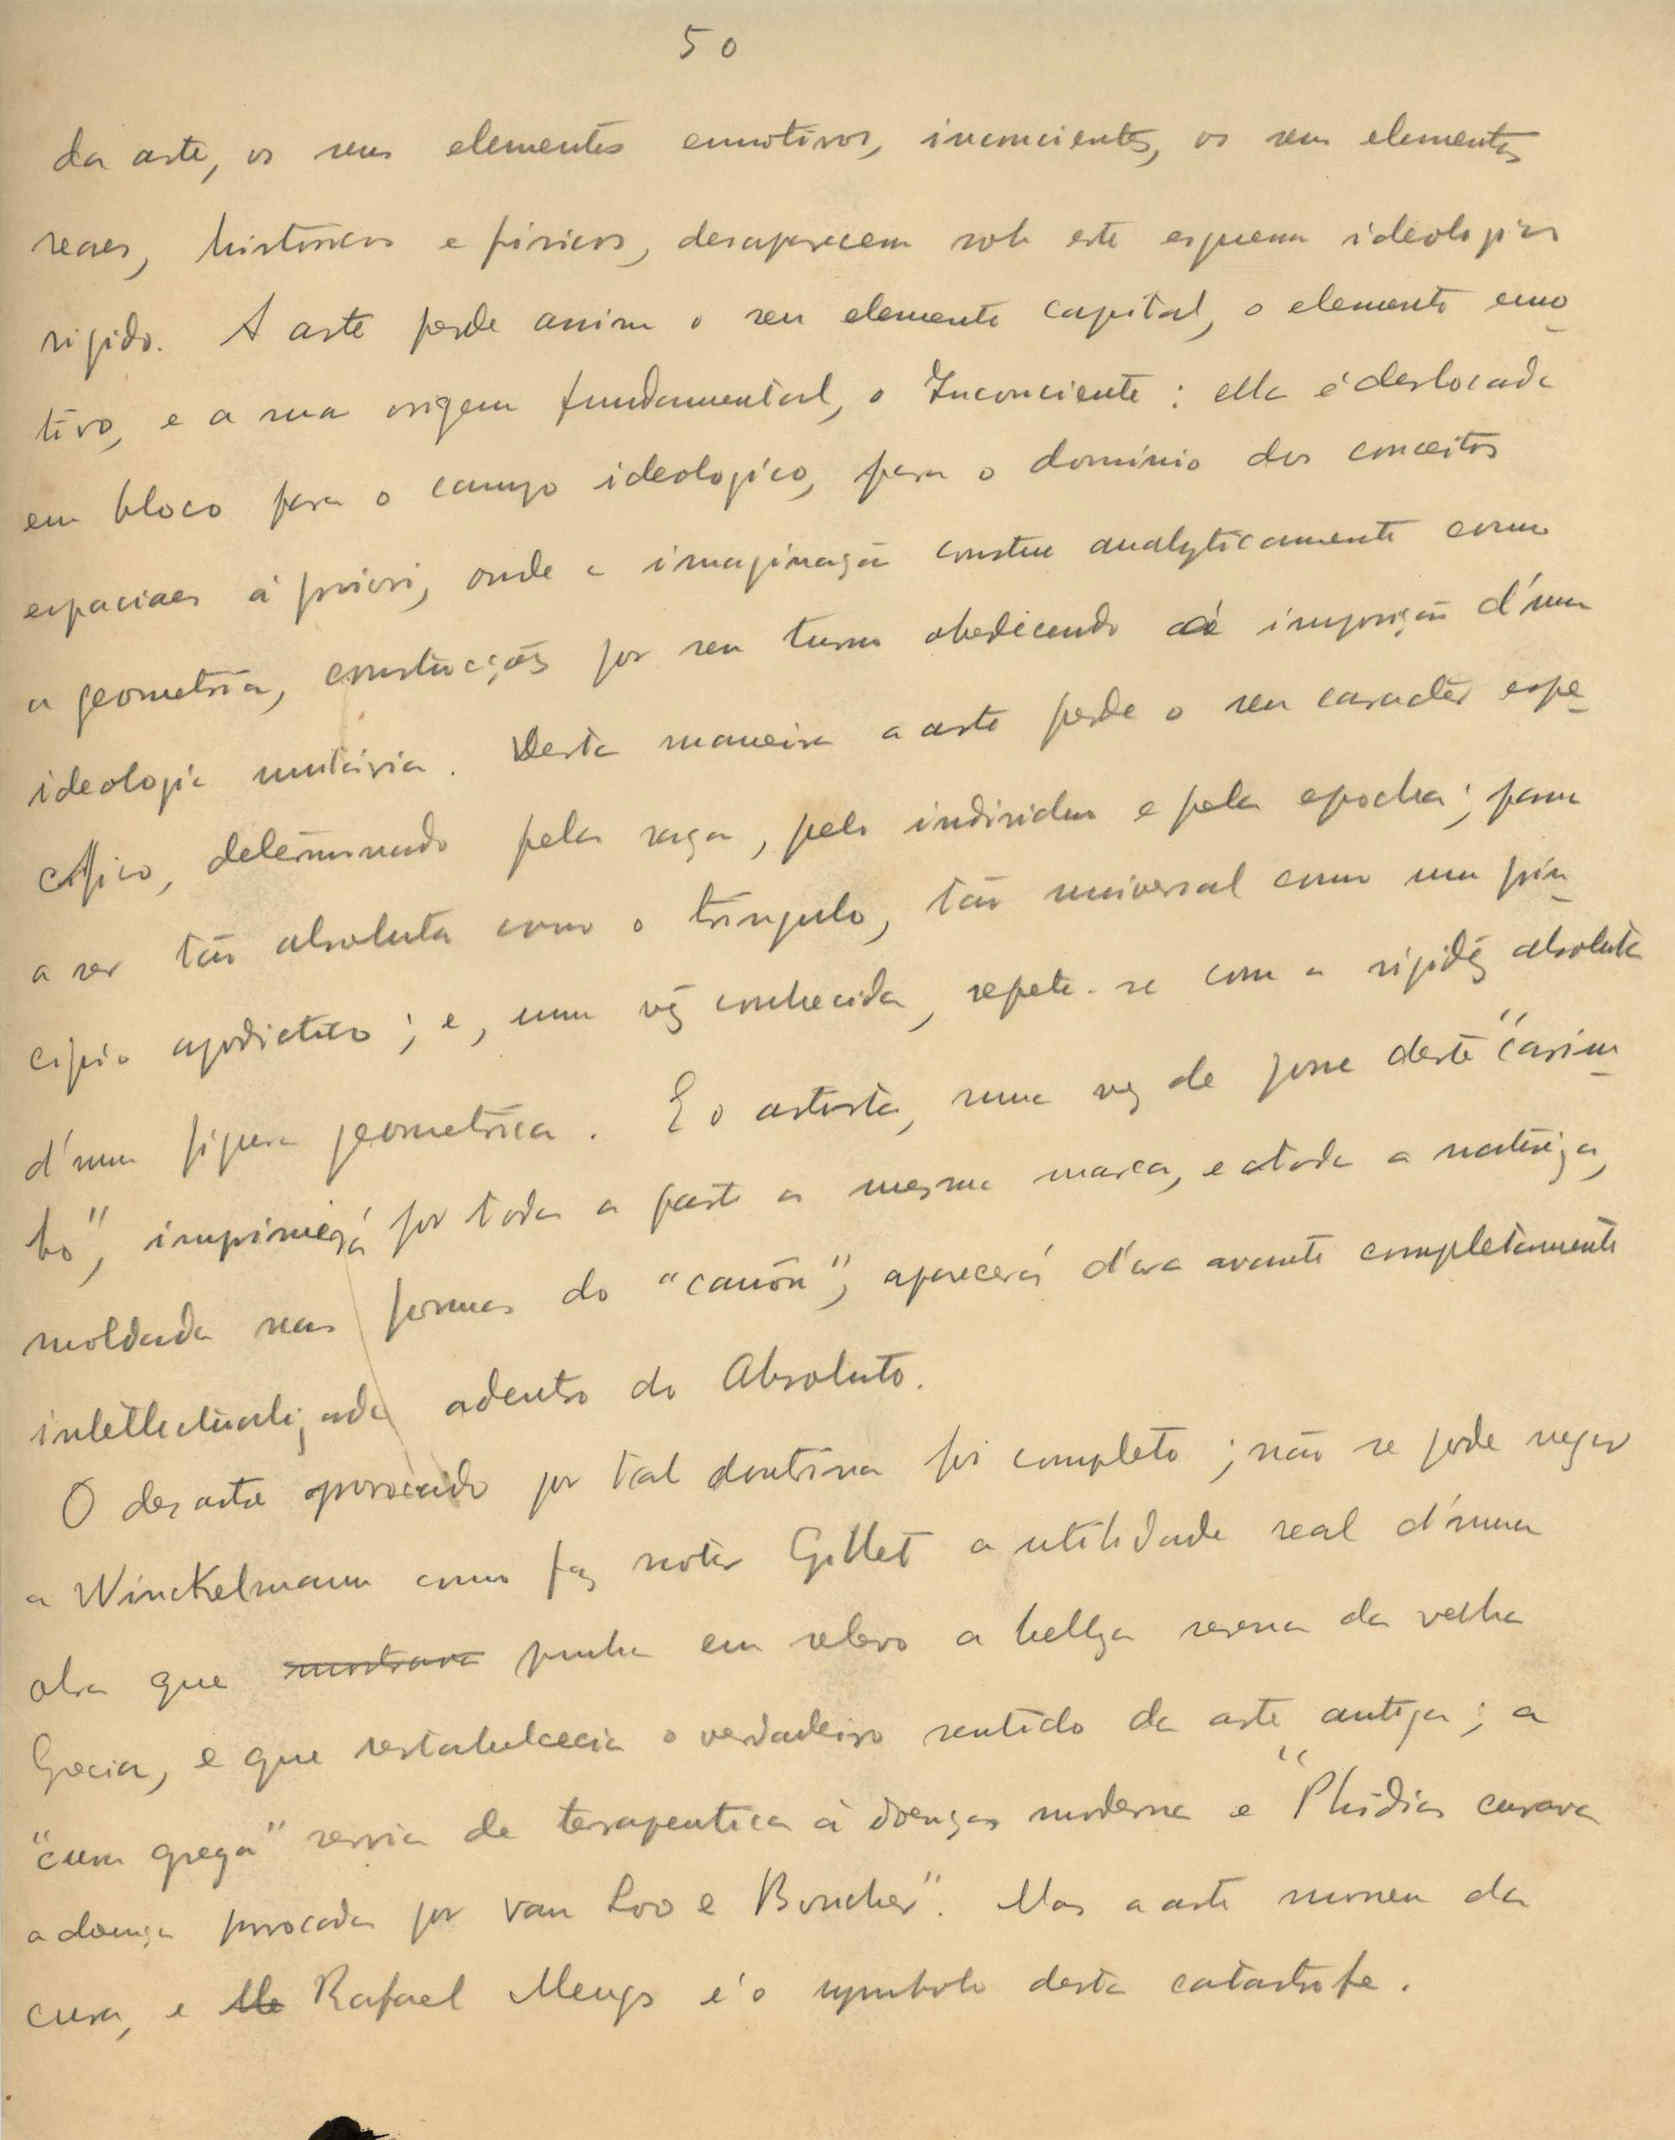 50
da arte, os seus elementos emotivos, inconcientes, os seus elementos
reaes, historicos e fisicos, desaparecem sob este esquema ideologico
rigido. A arte perde assim o seu elemento capital, o elemento emo-
tivo, e a sua origem fundamental, o Inconciente: ella é deslocada
em bloco para o campo ideologico, para o dominio dos conceitos
espaciaes á priori, onde a imaginação construe analyticamente como
a geometria, construcções por seu turno obedecendo á imposição d'uma
ideologia unitária. Desta maneira a arte perde o seu caracter espe-
cifico, determinado pela raça, pelo individuo e pela epocha; passa
a ser tão absoluta como o triangulo, tão universal como um prin-
cipio apodictico; e, uma vêz conhecida, repete-se com a rigidêz absoluta
d'uma figura geometrica. E o artista, uma vez de posse deste "carim-
bo", imprimirá por toda a parte a mesma marca, e a toda a natureza,
moldada nas formas do "canôn", aparecerá d'ora avante completamente
intellectualizada adentro do Absoluto.
O desastre provocado por tal doutrina foi completo; não se pode negar
a Winckelmann como faz notar Gillet a utilidade real d'uma
obra que mostrava punha em relevo a belleza serena da velha
Grecia, e que restabelecia o verdadeiro sentido da arte antiga; a
"cura grega" servia de terapeutica á doença moderna e "Phidias curava
a doença provocada por Van Loo e Boucher". Mas a arte morreu da
cura, e Me Rafael Mengs é o symbolo desta catastrofe.